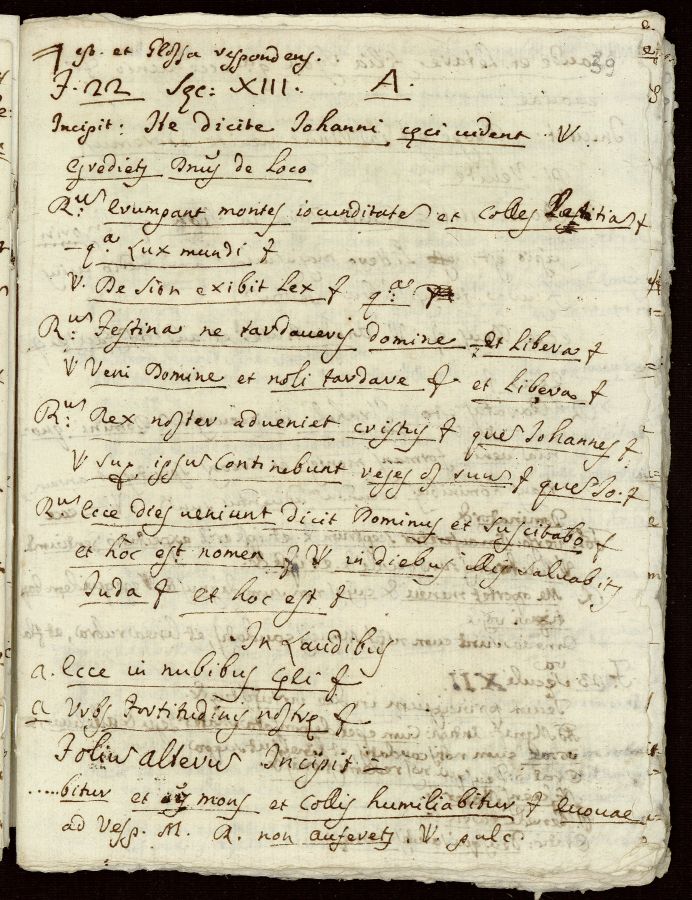 est. et Glosa respondens.
39
F. 22 Sęc: XIII. A.
Incipit: Ite dicite Iohanni, cęci uident V.
Egredietʒ Dnus de Loco
R.us erumpant montes iocunditates et Colles Lętitias
q.a Lux mundi
V. De Sion exibit Lex q.a
R.us Festina ne tardaueris domine et libera
V Veni Domine et noli tardare et libera
R.us Rex noster adueniet cristus ques Iohannes
V sup ipsus Continebunt reges os suus ques Io.
R.us Ecce dies ueniunt dicit Dominus et suscitabo
et hoc est nomen V in diebus illis saluabitʒ
Iuda et hoc est
In Laudibus
a. Ecce in nubibus cęli
a Vrbs Fortitudinis nostrę
Folius alterus Incipit =
.....bitur et mons et Collis humiliabitur euouae
ad Vesp. M. R. non auferetʒ V pulc